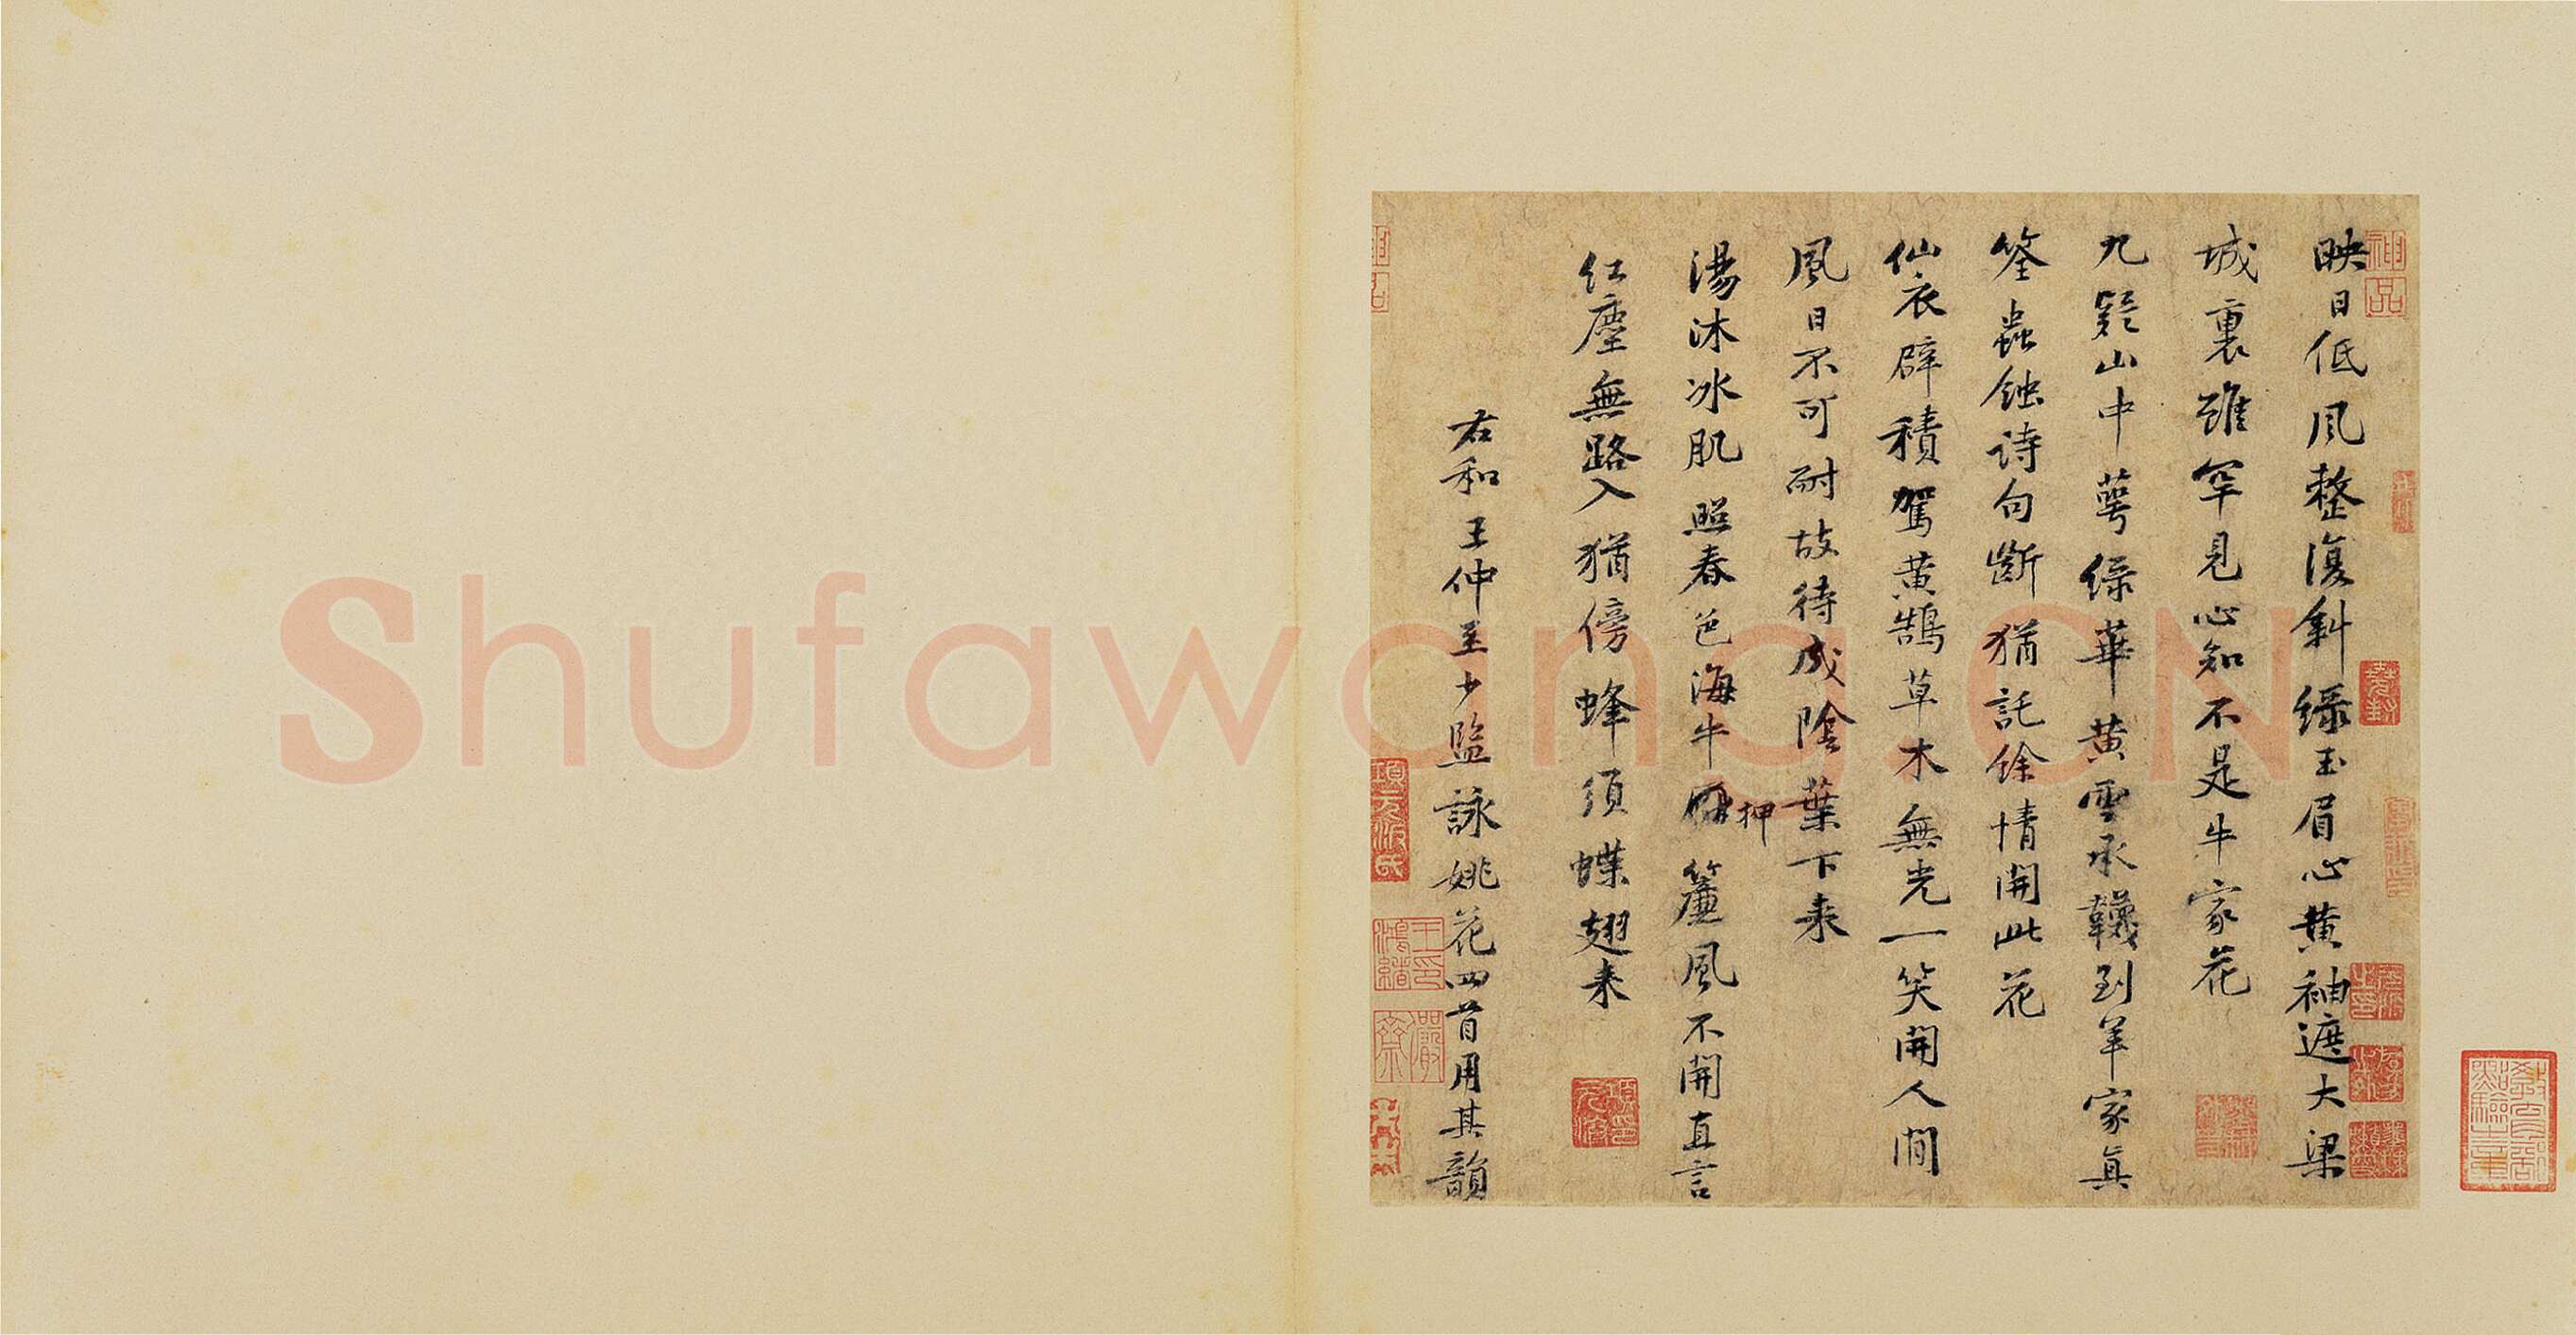 映日低风整復斜綠玉眉心黄袖遮大梁
城裏雖罕見心知不是牛家花
九疑山中萼綠華黄雲承韈到羊家真
筌蟲蝕詩句斷猶託餘情開此花
仙衣襞積駕黄鵠草木無光一笑開人間
風日不可耐故待成陰葉下来
湯沐冰肌照春色海牛押簾風不開直言
紅塵無路入猶傍蜂須蝶翅来
右和王仲至少監詠姚花四首用其韻
神品
項元汴氏
王鴻緒印
儼齋
項元汴印
Shufawang.CN